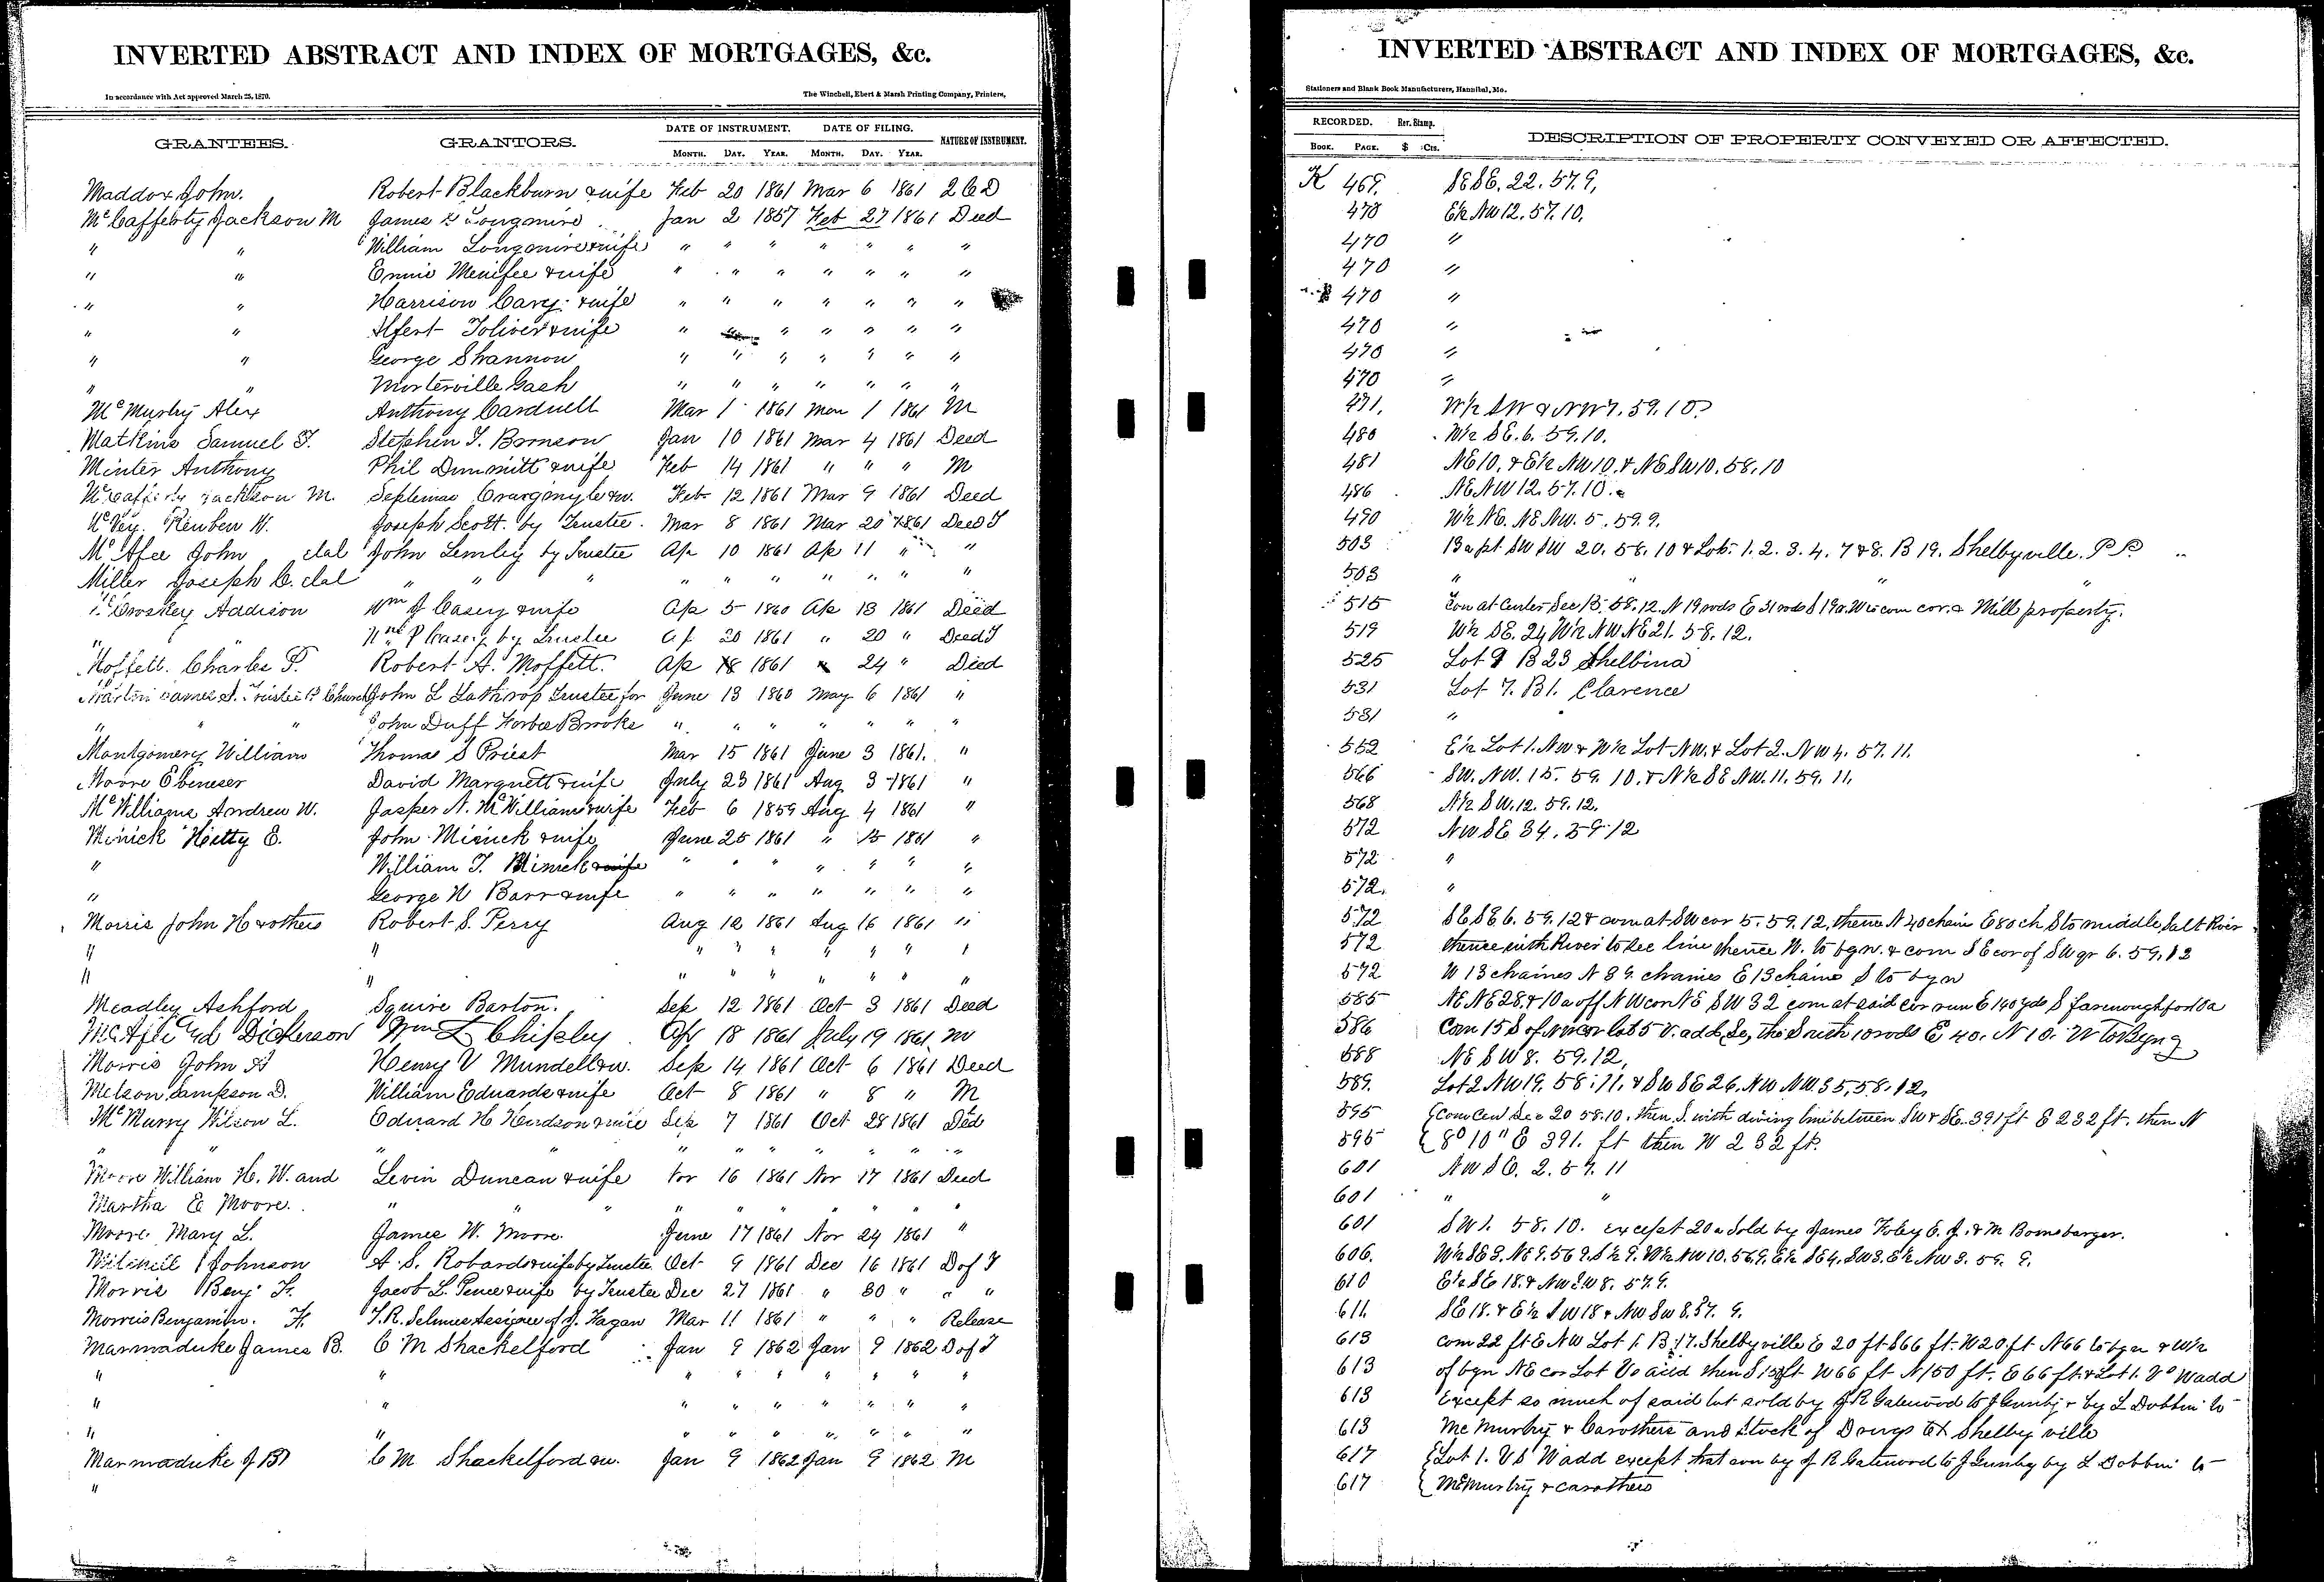 INVERTED ABSTRACT AND INDEX OF MORTGAGES, &c.
In accordance with Act approved March 25, 1870.
The Winchell, Ebert & Marsh Printing Company, Printers,
GRANTEES. GRANTORS. DATE OF INSTRUMENT. DATE OF FILING. NATURE OF INSTRUMENT.
MONTH. DAY. YEAR. MONTH. DAY. YEAR.
Maddox John. Robert Blackburn & wife Feb 20 1861 Mar 6 1861 2 & D
McCafferty Jackson M James Longmire Jan 2 1857 Feb 27 1861 Deed
" " William Longmire & wife " " " " " " "
" " Ennis Menifee & wife " " " " " " "
" " Harrison Cary & wife " " " " " " "
" " Alfert Toliver & wife " " " " " "
" " George Shannon " " " " " " "
" " Morterville Gash " " " " " " "
McMurtry Alex Anthony Carduell Mar 1 1861 Mar 1 1861 M
Matkins Samuel T. Stephen T. Bornson Jan 10 1861 Mar 4 1861 Deed
Minter Anthony Phil Dimmitt & wife Feb 14 1861 " " " M
McCafferty Jackson M. Septimas & w. Feb 12 1861 Mar 9 1861 Deed
McVey. Reuben W. Joseph Scott. by Trustee. Mar 8 1861 Mar 20 1861 Deed T
McAfee John etal John Lemley by Trustee Ap 10 1861 Ap 11 " "
Miller Joseph C. etal " " " " " " " " " "
McCroskey Addison Wm J Casey & wife Ap 5 1860 Ap 13 1861 Deed
" Wm P Casey by Trustee Ap 20 1861 " 20 " Deed T
Moffett. Charles P. Robert A. Moffett. Ap 18 1861 " 24 " Deed
Martin James S. Trustee Church John L Lathrop Trustee for June 13 1860 May 6 1861 "
" " " John Duff Forbes Brooks " " " " " " "
Montgomery William Thomas S Priest Mar 15 1861 June 3 1861. "
Moore Ebeneser David Marquett & wife July 23 1861 Aug 3 1861 "
McWilliams Andrew W. Jasper N. McWilliams & wife Feb 6 1859 Aug 4 1861 "
Minick Hetty E. John Minick & wife June 25 1861 " 15 1861 "
" William T. Minick " " " " " " "
" George W Barr & wife " " " " " " "
Morris John H & others Robert S. Perry Aug 12 1861 Aug 16 1861 "
" " " " " " " " "
" " " " " " " " "
Meadley Ashford Squire Barton. Sep 12 1861 Oct 3 1861 Deed
McAfee Dickerson Wm L Chipley Apr 18 1861 July 19 1861 M
Morris John H Henry V Mundell & w. Sep 14 1861 Oct 6 1861 Deed
Melson Sampson D. William Edwards & wife Oct 8 1861 " 8 " M
McMurry Wilson L. Edward H Hendson & wife Sep 7 1861 Oct 28 1861 Ded
" " " " " " " " "
Moore William H. W. and Levin Duncan & wife Nov 16 1861 Nov 17 1861 Deed
Martha E Moore. " " " " " " " " "
Moore Mary L. James W. Moore. June 17 1861 Nov 24 1861 "
Johnson A. S. Robards & wife by Trustee Oct 9 1861 Dec 16 1861 D of T
Morris Benj F. Jacob L. Pence & wife by Trustee Dec 27 1861 " 30 " " "
Morris Benjamin. F. T. R. Selmes Assignee of J. Hagan Mar 11 1861 " " " Release
Marmaduke James B. C M Shackelford Jan 9 1862 Jan 9 1862 D of T
" " " " " " " " "
" " " " " " " " "
" " " " " " " " "
Marmaduke J B C M Shackelford & w. Jan 9 1862 Jan 9 1862 M
"
INVERTED ABSTRACT AND INDEX OF MORTGAGES, &c.
Stationers and Blank Book Manufacturers, Hannibal, Mo.
RECORDED. Rev. Stamp. DESCRIPTION OF PROPERTY CONVEYED OR AFFECTED.
BOOK. PAGE. $ Cts.
K 469. SE SE. 22. 57. 9,
470 E½ NW 12. 57. 10.
470 "
470 "
470 "
470 "
470 "
470 "
471. W½ SW & NW 7. 59. 10
480 W½ SE. 6. 59. 10.
481 NE 10. & E½ NW 10. & NE SW 10. 58. 10
486 NE NW 12. 57. 10.
490 W½ NE. NE NW. 5. 59. 9.
503 13 a pt. SW SW 20. 58. 10 & Lots. 1. 2. 3. 4. 7 & 8. B 19. Shelbyville. P P
503 " " " "
515 Com at Center Sec 13. 58. 12. N 19 rods E 31 rods S 19 r. W to com cor. & Mill property.
519 W½ SE. 24 W½ NW NE 21. 58. 12.
525 Lot 9 B 23 Shelbina
531 Lot 7. B 1. Clarence
531 "
552 E½ Lot 1. NW & W½ Lot NW. & Lot 2. NW 4. 57. 11.
566 SW. NW. 15. 59. 10. & N½ SE NW. 11. 59. 11.
568 N½ SW. 12. 59. 12.
572 NW SE 34. 59. 12
572 "
572. "
572 SE SE 6. 59. 12 & com at SW cor 5. 59. 12, thence N 40 chain E 80 ch S to middle Salt River
572 thence with River to Sec line thence W. to bgn. & com SE cor of SW qr 6. 59. 12
572 W 13 chaines N 39. chaines E 13 chains S to bgn
585 NE NE 28. & 10 a off NW cor NE SW 32 com at said cor run E 140 yds S far enough for 10 a
586 Com 15 S of cor lot 5 V. add, the S 10 rods E 40. N 10. W to Bgng
588 NE SW 8. 59. 12,
589. Lot 2 NW 19. 58. 11. & SW SE 26. NW NW 35, 58. 12.
595 Com Cen Sec 20 58. 10. then S. with diving line between SW & SE. 391 ft E 232 ft. then N
595 8° 10" E 391. ft then W 232 ft.
601 NW SE. 2. 57. 11
601 " "
601 SW 1. 58. 10. except 20 a sold by James Foley E. J. & M Bomsbarger.
606. W½ SE 3. NE 9. 56 9. S½ 9. W½ NW 10. 56. 9. E½ SE 4. SW 3. E½ NW 3. 59. 9.
610 E½ SE 18. & NW SW 8. 57. 9.
611. SE 18. & E½ SW 18 & NW SW 8. 57. 9.
613 com 22 ft E NW Lot 1. B 17. Shelbyville E 20 ft S 66 ft. W 20 ft N 66 to bgn & W½
613 of bgn NE cor Lot add then S 150 ft W 66 ft N 150 ft. E 66 ft. & Lot 1. W add
613 Except so much of said lot sold by J R Gatewood to J Gunby & by L Dobbin to
613 McMurtry & Carothers and Stock of Drugs Shelbyville
617 Lot 1. V S W add except that son by J R Gatewood to J Gunby by L Dobbin to
617 McMurtry & Carothers